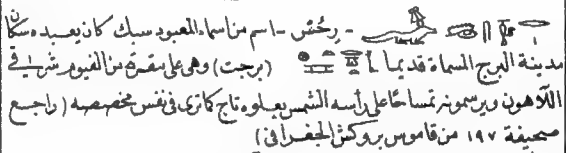 - رخُسْ - اسم من اسماء المعبود سبك كان يعبده سكان
مدينة البرج المسماة قديما (برجت) وهى على مقربة من الفيوم شرقى
اللاهون ويرسمونه تمساحًا على رأسه الشمس يعلوه تاج كما ترى فى نفس مخصصه (راجع
صحيفة ١٩٧ من قاموس بروكش الجغرافى)